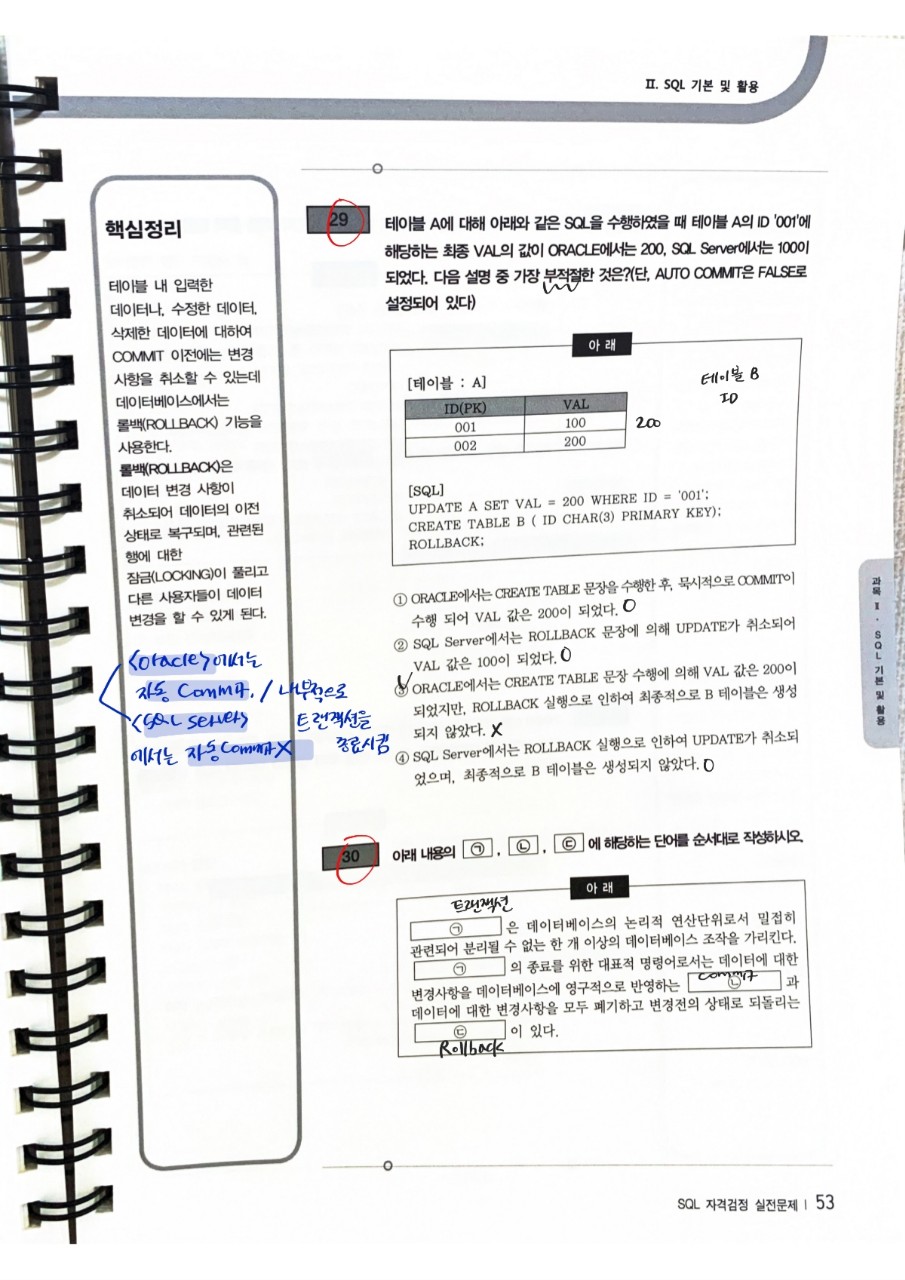 II. SQL 기본 및 활용
핵심정리
테이블 내 입력한
데이터나, 수정한 데이터,
삭제한 데이터에 대하여
COMMIT 이전에는 변경
사항을 취소할 수 있는데
데이터베이스에서는
롤백(ROLLBACK) 기능을
사용한다.
롤백(ROLLBACK)은
데이터 변경 사항이
취소되어 데이터의 이전
상태로 복구되며, 관련된
행에 대한
잠금(LOCKING)이 풀리고
다른 사용자들이 데이터
변경을 할 수 있게 된다.
<Oracle>에서는
자동 Commit, / 내부적으로
<SQL server> 트랜잭션을
에서는 자동commit X 종료시킴
29
테이블 A에 대해 아래와 같은 SQL을 수행하였을 때 테이블 A의 ID '001'에
해당하는 최종 VAL의 값이 ORACLE에서는 200, SQL Server에서는 100이
되었다. 다음 설명 중 가장 부적절한 것은?(단, AUTO COMMIT은 FALSE로
설정되어 있다)
아 래
[테이블 : A]
테이블 B
ID
ID(PK) VAL
001 100 200
002 200
[SQL]
UPDATE A SET VAL = 200 WHERE ID = '001';
CREATE TABLE B ( ID CHAR(3) PRIMARY KEY);
ROLLBACK;
① ORACLE에서는 CREATE TABLE 문장을 수행한 후, 묵시적으로 COMMIT이
수행 되어 VAL 값은 200이 되었다. O
② SQL Server에서는 ROLLBACK 문장에 의해 UPDATE가 취소되어
VAL 값은 100이 되었다. O
③ ORACLE에서는 CREATE TABLE 문장 수행에 의해 VAL 값은 200이
되었지만, ROLLBACK 실행으로 인하여 최종적으로 B 테이블은 생성
되지 않았다. X
④ SQL Server에서는 ROLLBACK 실행으로 인하여 UPDATE가 취소되
었으며, 최종적으로 B 테이블은 생성되지 않았다. O
과목 II · SQL 기본 및 활용
30
아래 내용의 ㉠ , ㉡ , ㉢ 에 해당하는 단어를 순서대로 작성하시오.
아 래
트랜잭션
㉠ 은 데이터베이스의 논리적 연산단위로서 밀접히
관련되어 분리될 수 없는 한 개 이상의 데이터베이스 조작을 가리킨다.
㉠ 의 종료를 위한 대표적 명령어로서는 데이터에 대한
commit
변경사항을 데이터베이스에 영구적으로 반영하는 ㉡ 과
데이터에 대한 변경사항을 모두 폐기하고 변경전의 상태로 되돌리는
㉢ 이 있다.
Rollback
SQL 자격검정 실전문제 | 53